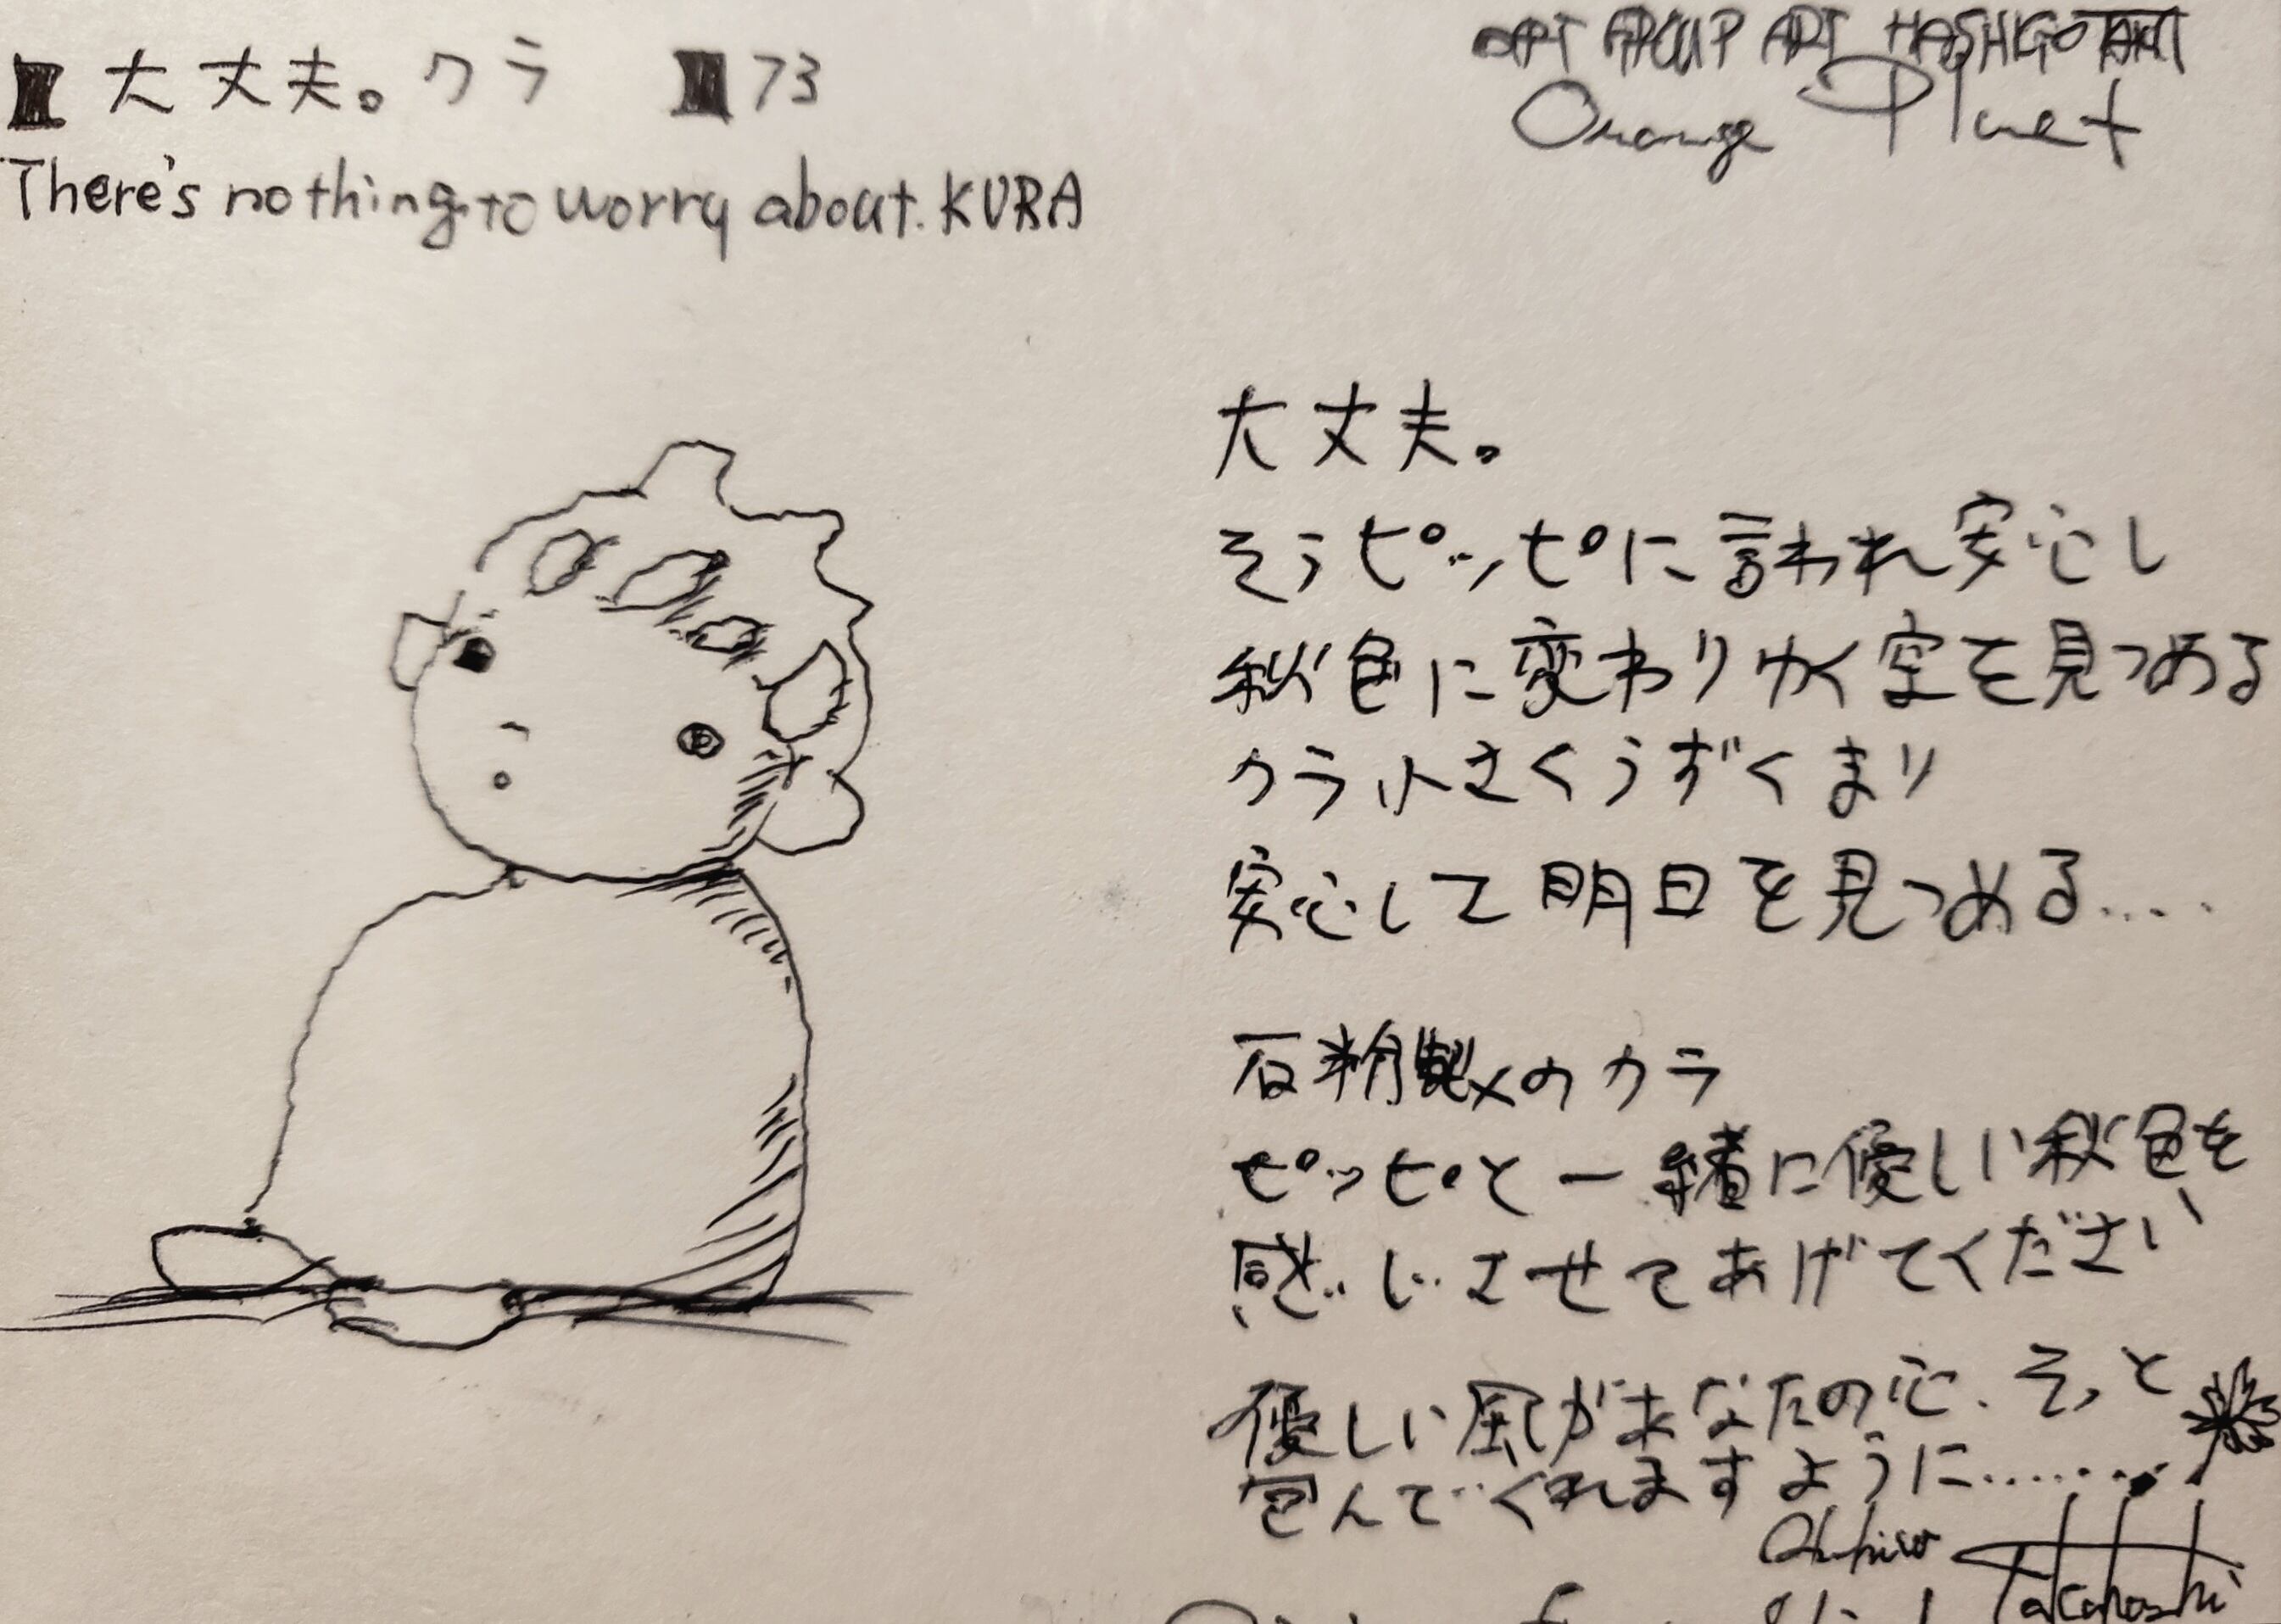 大丈夫。クラ 73
There's nothing to worry about. KURA
ART HASHIGOTAKA
Orange Planet
大丈夫。
そうピッピに言われ安心し
秋色に変わりゆく空を見つめる
クラ小さくうずくまり
安心して明日を見つめる....
石粉製のクラ
ピッピと一緒に優しい秋色を
感じさせてあげてください
優しい風があなたの心、そっと
包んでくれますように........
Takahashi